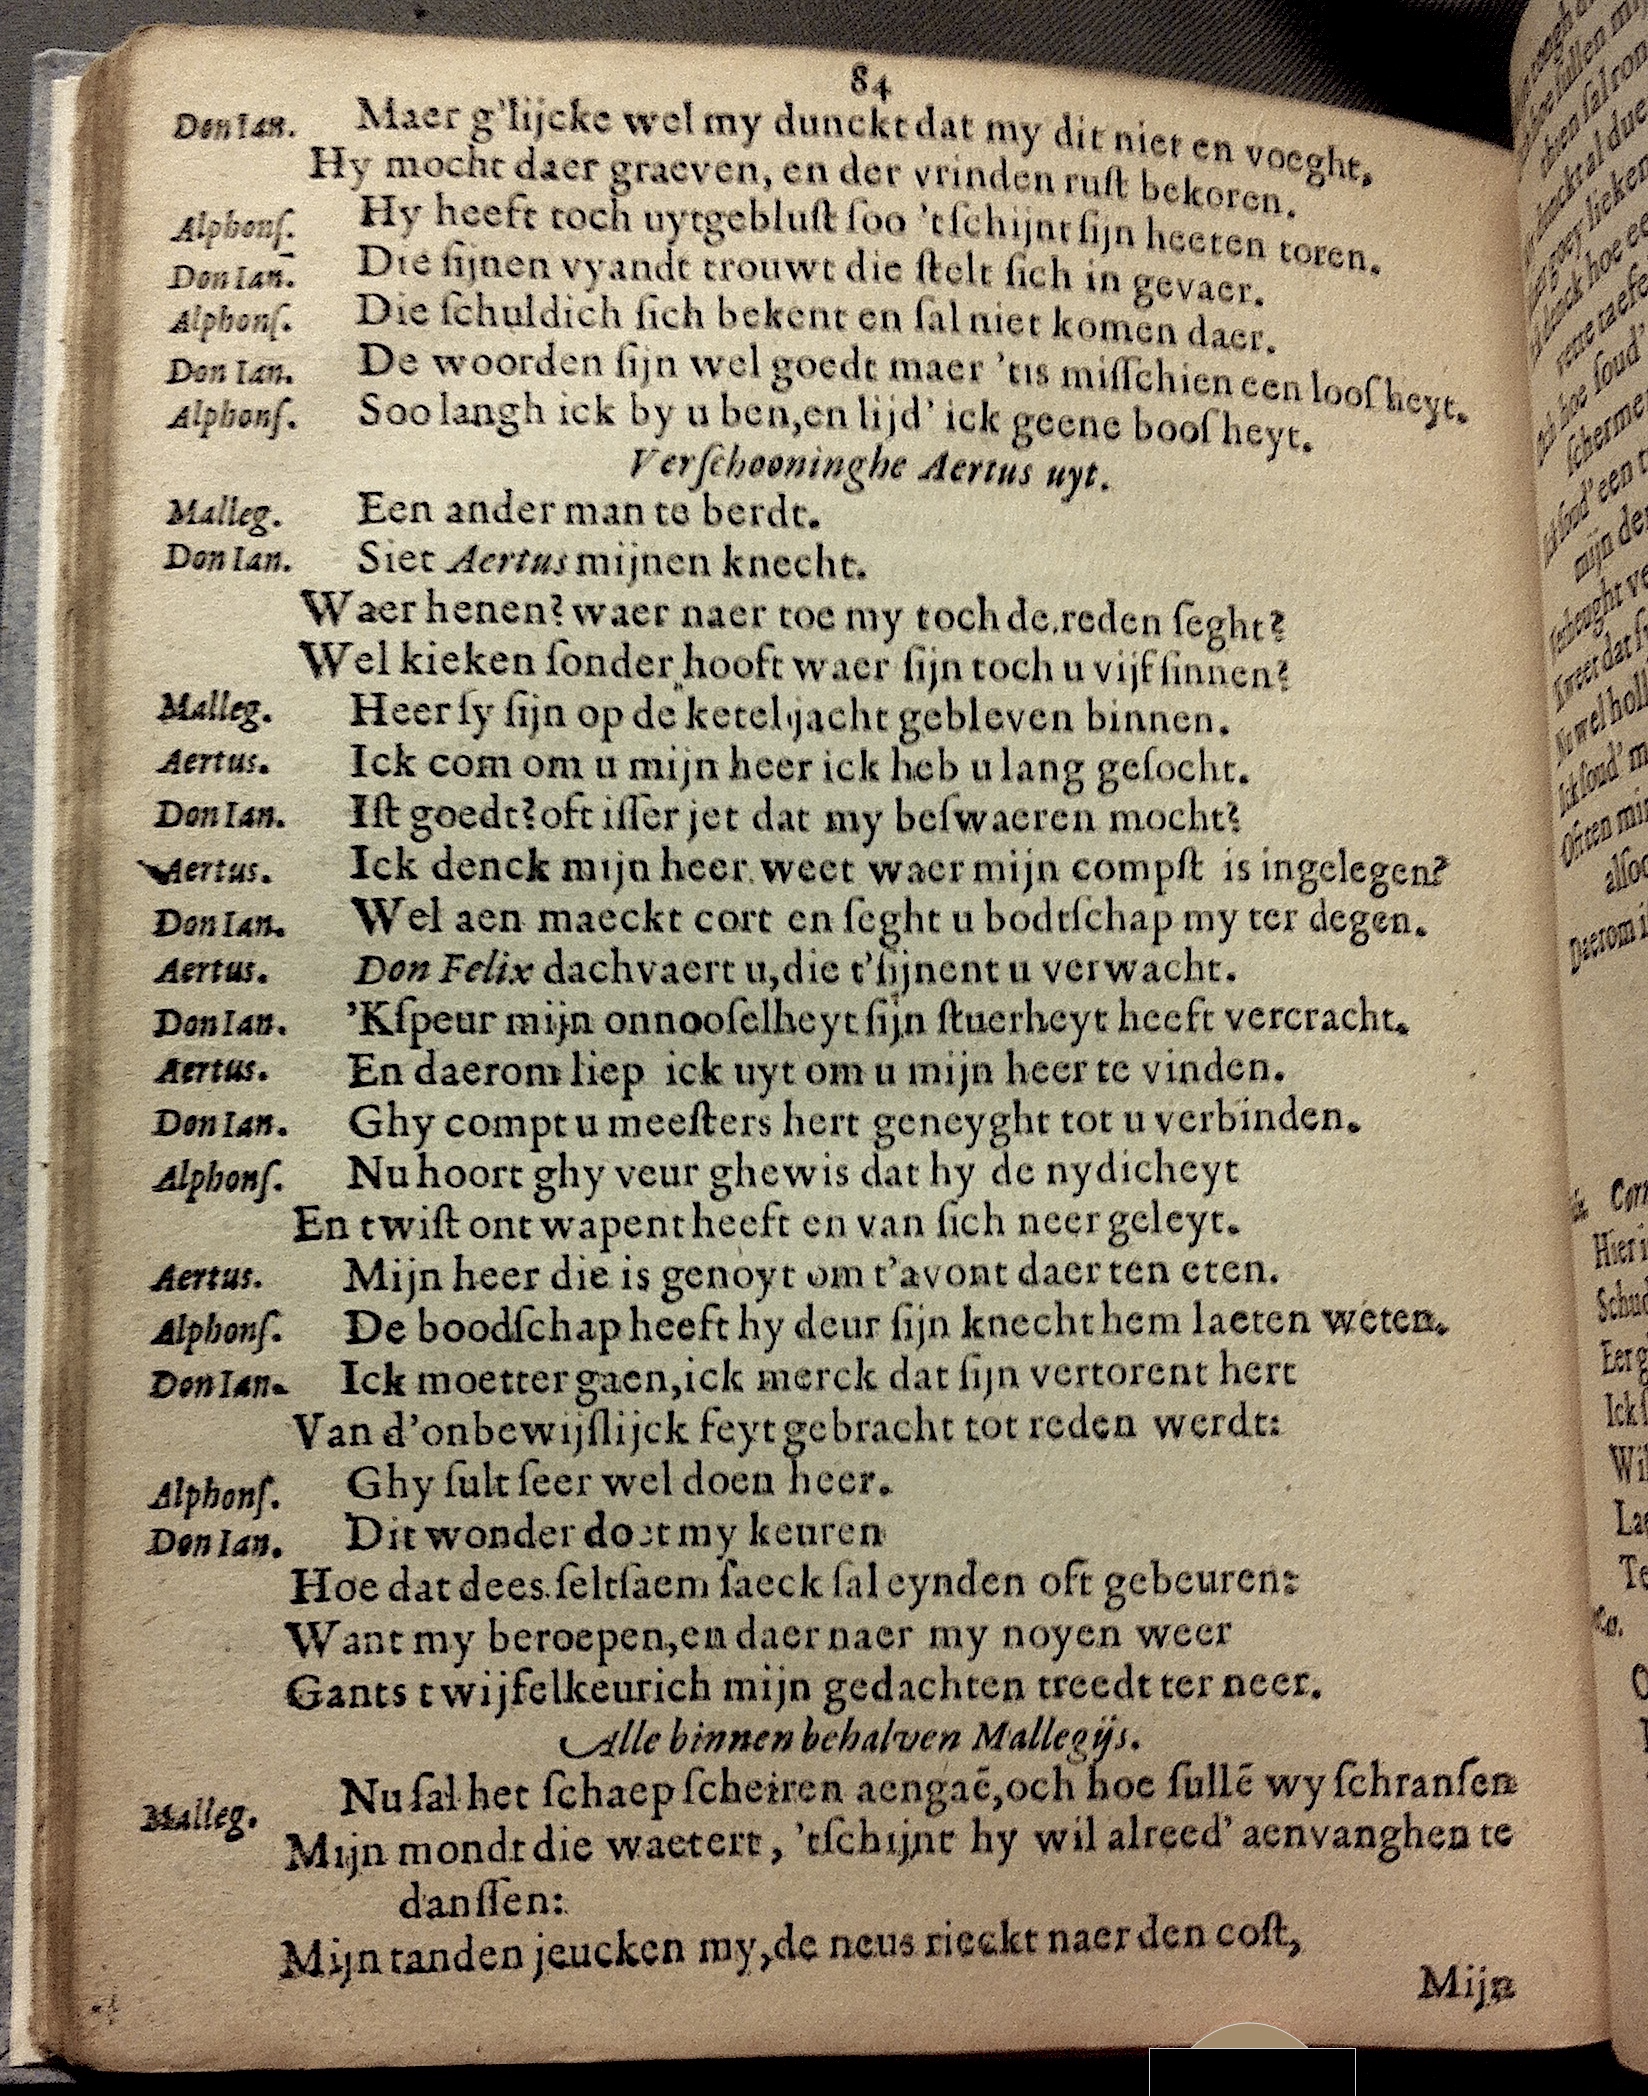 84
Don Ian. Maer g'lijcke wel my dunckt dat my dit niet en voeght,
Hy mocht daer graeven, en der vrinden ruſt bekoren.
Alphonſ. Hy heeft toch uytgebluſt ſoo 'tſchijnt ſijn heeten toren.
Don Ian. Die ſijnen vyandt trouwt die ſtelt ſich in gevaer.
Alphonſ. Die ſchuldich ſich bekent en ſal niet komen daer.
Don Ian. De woorden ſijn wel goedt maer 'tis miſſchien een looſheyt.
Alphonſ. Soo langh ick by u ben, en lijd' ick geene booſheyt.
Verſchooninghe Aertus uyt.
Malleg. Een ander man te berdt.
Don Ian. Siet Aertus mijnen knecht.
Waer henen? waer naer toe my toch de reden ſeght?
Wel kieken ſonder hooft waer ſijn toch u vijf ſinnen?
Malleg. Heer ſy ſijn op de ketel jacht gebleven binnen.
Aertus. Ick com om u mijn heer ick heb u lang geſocht.
Don Ian. Iſt goedt? oft iſſer jet dat my beſwaeren mocht?
Aertus. Ick denck mijn heer weet waer mijn compſt is ingelegen?
Don Ian. Wel aen maeckt cort en ſeght u bodtſchap my ter degen.
Aertus. Don Felix dachvaert u, die t'ſijnent u verwacht.
Don Ian. 'Kſpeur mijn onnooſelheyt ſijn ſtuerheyt heeft vercracht.
Aertus. En daerom liep ick uyt om u mijn heer te vinden.
Don Ian. Ghy compt u meeſters hert geneyght tot u verbinden.
Alphonſ. Nu hoort ghy veur ghewis dat hy de nydicheyt
En twiſt ontwapent heeft en van ſich neer geleyt.
Aertus. Mijn heer die is genoyt om t'avont daer ten eten.
Alphonſ. De boodſchap heeft hy deur ſijn knecht hem laeten weten.
Don Ian. Ick moetter gaen, ick merck dat ſijn vertorent hert
Van d'onbewijſlijck feyt gebracht tot reden werdt:
Alphonſ. Ghy ſult ſeer wel doen heer.
Don Ian. Dit wonder doet my keuren
Hoe dat dees ſeltſaem ſaeck ſal eynden oft gebeuren:
Want my beroepen, en daer naer my noyen weer
Gants twijfelkeurich mijn gedachten treedt ter neer.
Alle binnen behalven Mallegijs.
Malleg. Nu ſal het ſchaep ſcheiren aengaē, och hoe ſullē wy ſchranſen
Mijn mondt die waetert, 'tſchijnt hy wil alreed' aenvanghen te
danſſen:
Mijn tanden jeucken my, de neus rieckt naer den coſt,
Mijn